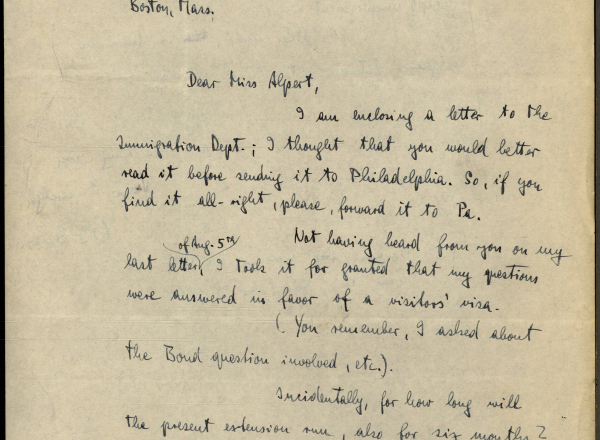 Boston, Mass.
Dear Miss Alpert,
I am enclosing a letter to the
Immigration Dept.; I thought that you would better
read it before sending it to Philadelphia. So, if you
find it all-right, please, forward it to Pa.
Not having heard from you on my
of Aug. 5th
last letter, I took it for granted that my questions
were answered in favor of a visitors' visa.
(You remember, I asked about
the Bond question involved, etc.).
Incidentally, for how long will
the present extension run, also for six months?